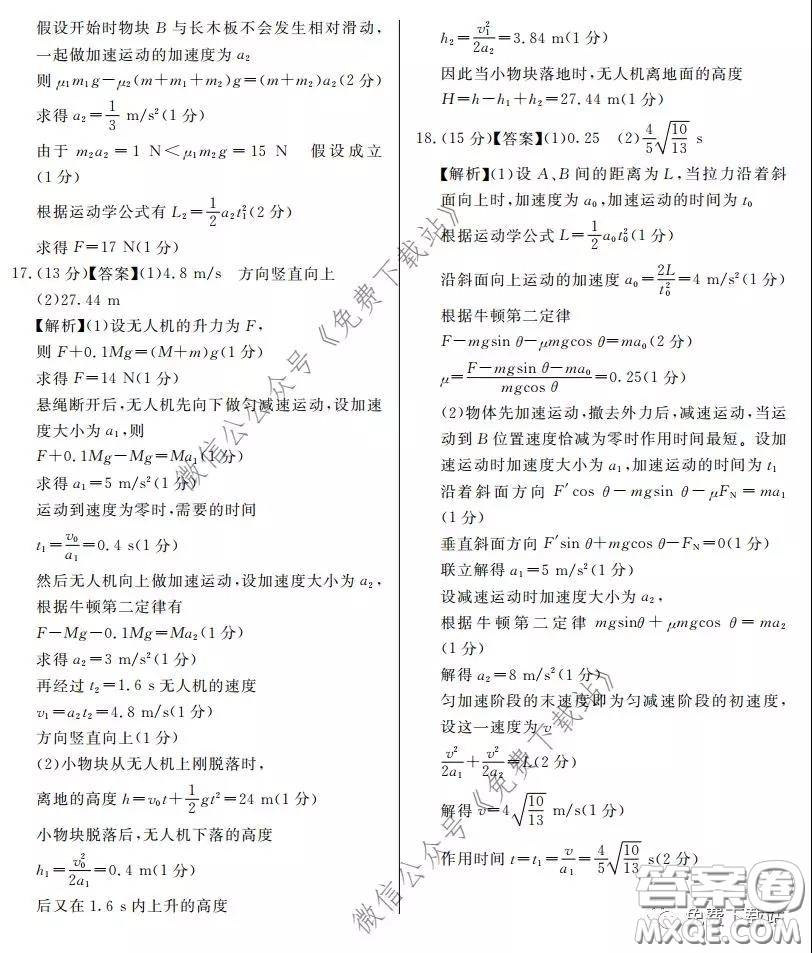 假设开始时物块 B 与长木板不会发生相对滑动,
一起做加速运动的加速度为 a₂
则 μ₁m₁g－μ₂(m＋m₁＋m₂)g＝(m＋m₂)a₂(2 分)
求得 a₂＝1/3 m/s²(1 分)
由于 m₂a₂＝1 N＜μ₁m₂g＝15 N 假设成立
(1 分)
根据运动学公式有 L₂＝1/2 a₂t₁²(2 分)
求得 F＝17 N(1 分)
17.(13 分)【答案】(1)4.8 m/s 方向竖直向上
(2)27.44 m
【解析】(1)设无人机的升力为 F,
则 F＋0.1Mg＝(M＋m)g(1 分)
求得 F＝14 N(1 分)
悬绳断开后,无人机先向下做匀减速运动,设加速
度大小为 a₁,则
F＋0.1Mg－Mg＝Ma₁(1 分)
求得 a₁＝5 m/s²(1 分)
运动到速度为零时,需要的时间
t₁＝v₀/a₁＝0.4 s(1 分)
然后无人机向上做加速运动,设加速度大小为 a₂,
根据牛顿第二定律有
F－Mg－0.1Mg＝Ma₂(1 分)
求得 a₂＝3 m/s²(1 分)
再经过 t₂＝1.6 s 无人机的速度
v₁＝a₂t₂＝4.8 m/s(1 分)
方向竖直向上(1 分)
(2)小物块从无人机上刚脱落时,
离地的高度 h＝v₀t＋1/2 gt²＝24 m(1 分)
小物块脱落后,无人机下落的高度
h₁＝v₀²/2a₁＝0.4 m(1 分)
后又在 1.6 s 内上升的高度
h₂＝v₁²/2a₂＝3.84 m(1 分)
因此当小物块落地时,无人机离地面的高度
H＝h－h₁＋h₂＝27.44 m(1 分)
18.(15 分)【答案】(1)0.25 (2)4/5 √(10/13) s
【解析】(1)设 A、B 间的距离为 L,当拉力沿着斜
面向上时,加速度为 a₀,加速运动的时间为 t₀
根据运动学公式 L＝1/2 a₀t₀²(1 分)
沿斜面向上运动的加速度 a₀＝2L/t₀²＝4 m/s²(1 分)
根据牛顿第二定律
F－mgsin θ－μmgcos θ＝ma₀(2 分)
μ＝(F－mgsin θ－ma₀)/(mgcos θ)＝0.25(1 分)
(2)物体先加速运动,撤去外力后,减速运动,当运
动到 B 位置速度恰减为零时作用时间最短。设加
速运动时加速度大小为 a₁,加速运动的时间为 t₁
沿着斜面方向 F′cos θ－mgsin θ－μF_N＝ma₁
(1 分)
垂直斜面方向 F′sin θ＋mgcos θ－F_N＝0(1 分)
联立解得 a₁＝5 m/s²(1 分)
设减速运动时加速度大小为 a₂,
根据牛顿第二定律 mgsinθ＋μmgcos θ＝ma₂
(1 分)
解得 a₂＝8 m/s²(1 分)
匀加速阶段的末速度即为匀减速阶段的初速度,
设这一速度为 v
v²/2a₁＋v²/2a₂＝L(2 分)
解得 v＝4√(10/13) m/s(1 分)
作用时间 t＝t₁＝v/a₁＝4/5 √(10/13) s(2 分)
微信公众号《免费下载站》
微信公众号《免费下载站》
答案卷
免费下载站
MXQE.COM